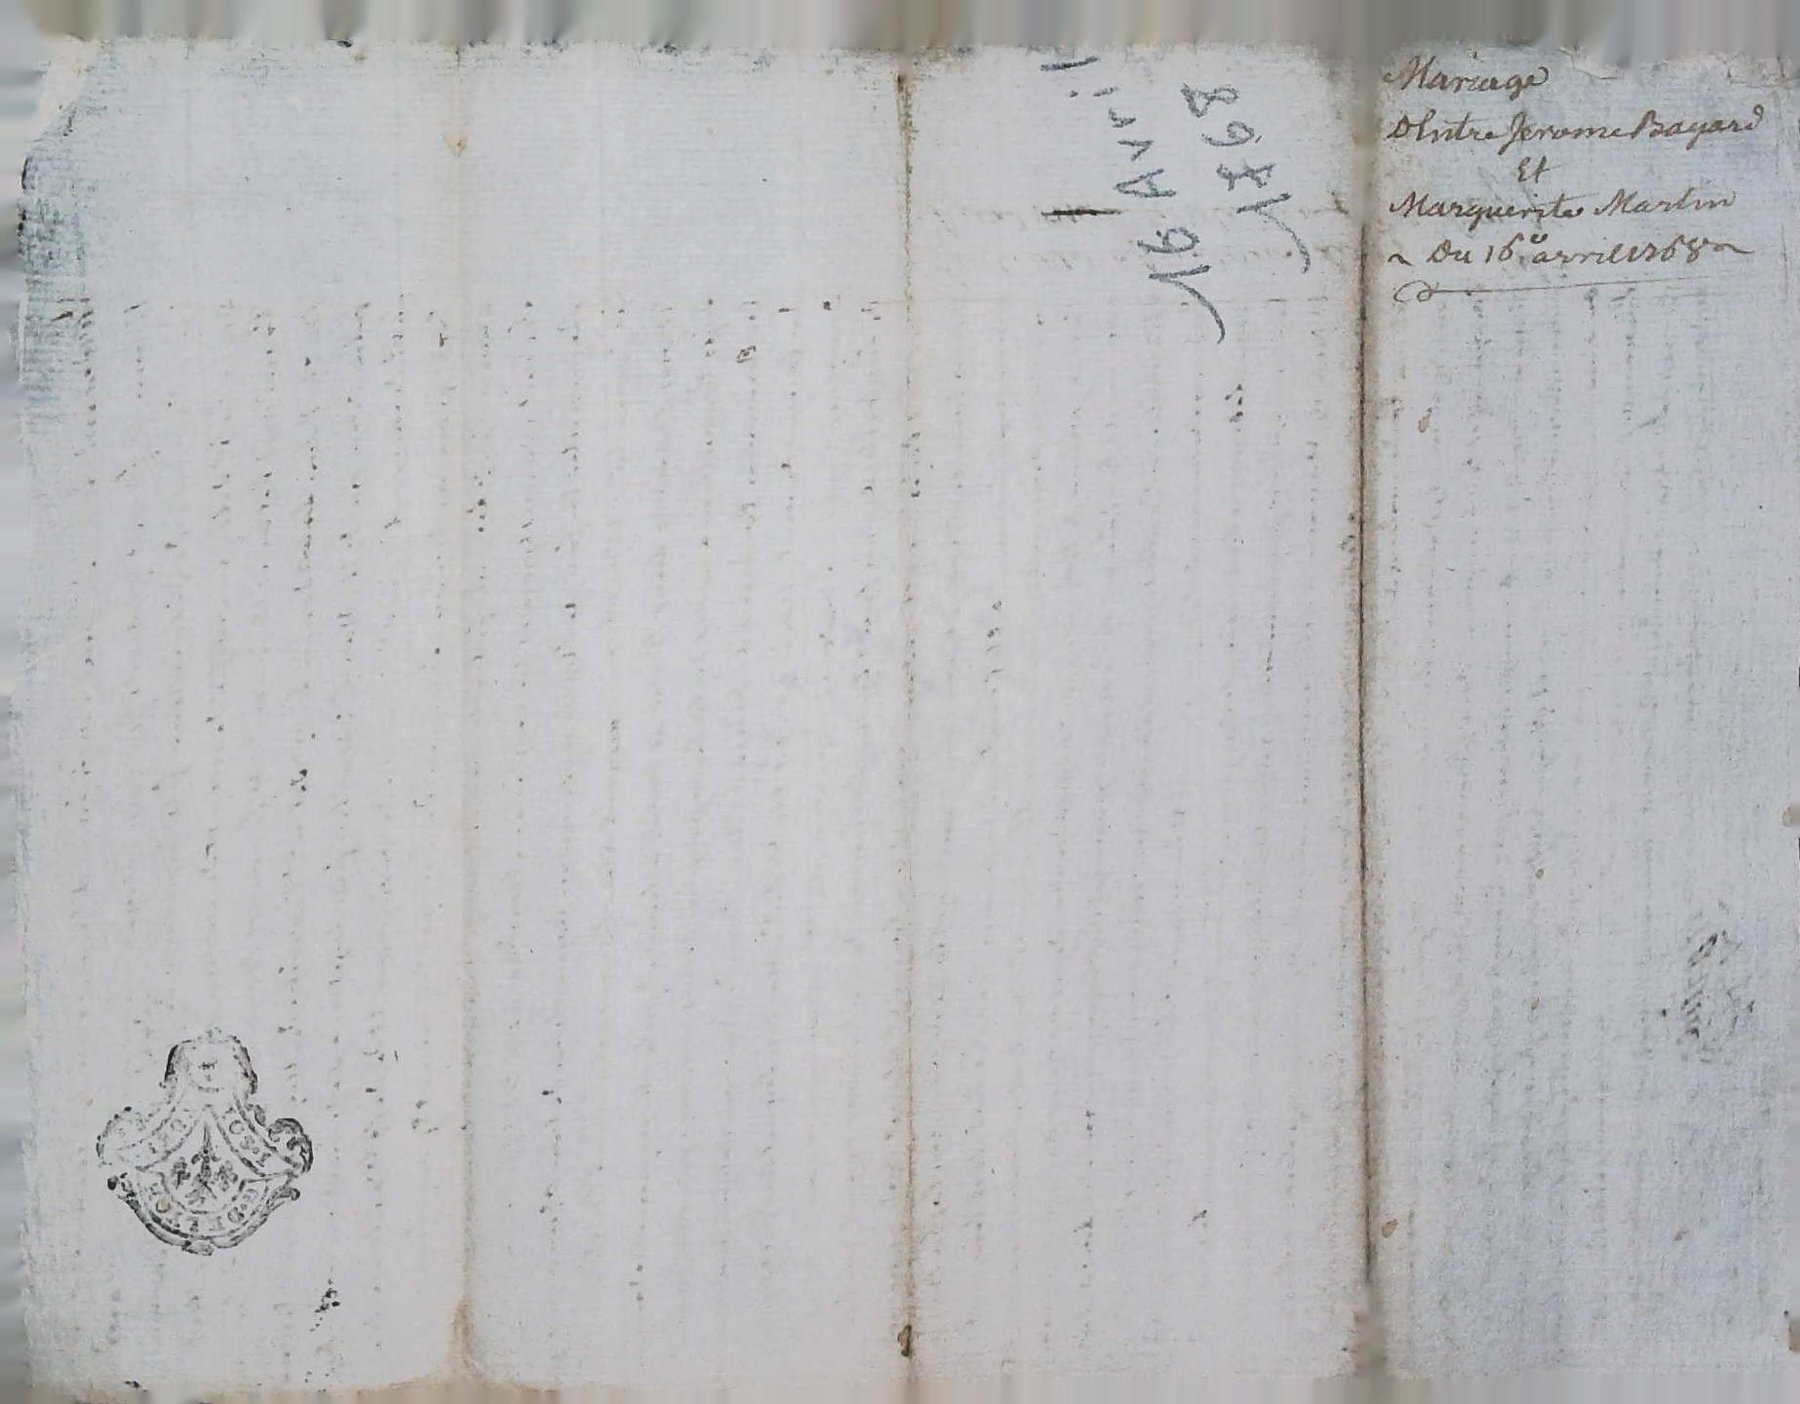 Mariage
D'Entre Jerome Bayard
Et
Marguerite Martin
Du 16e avril 1768
16 Avril
1768